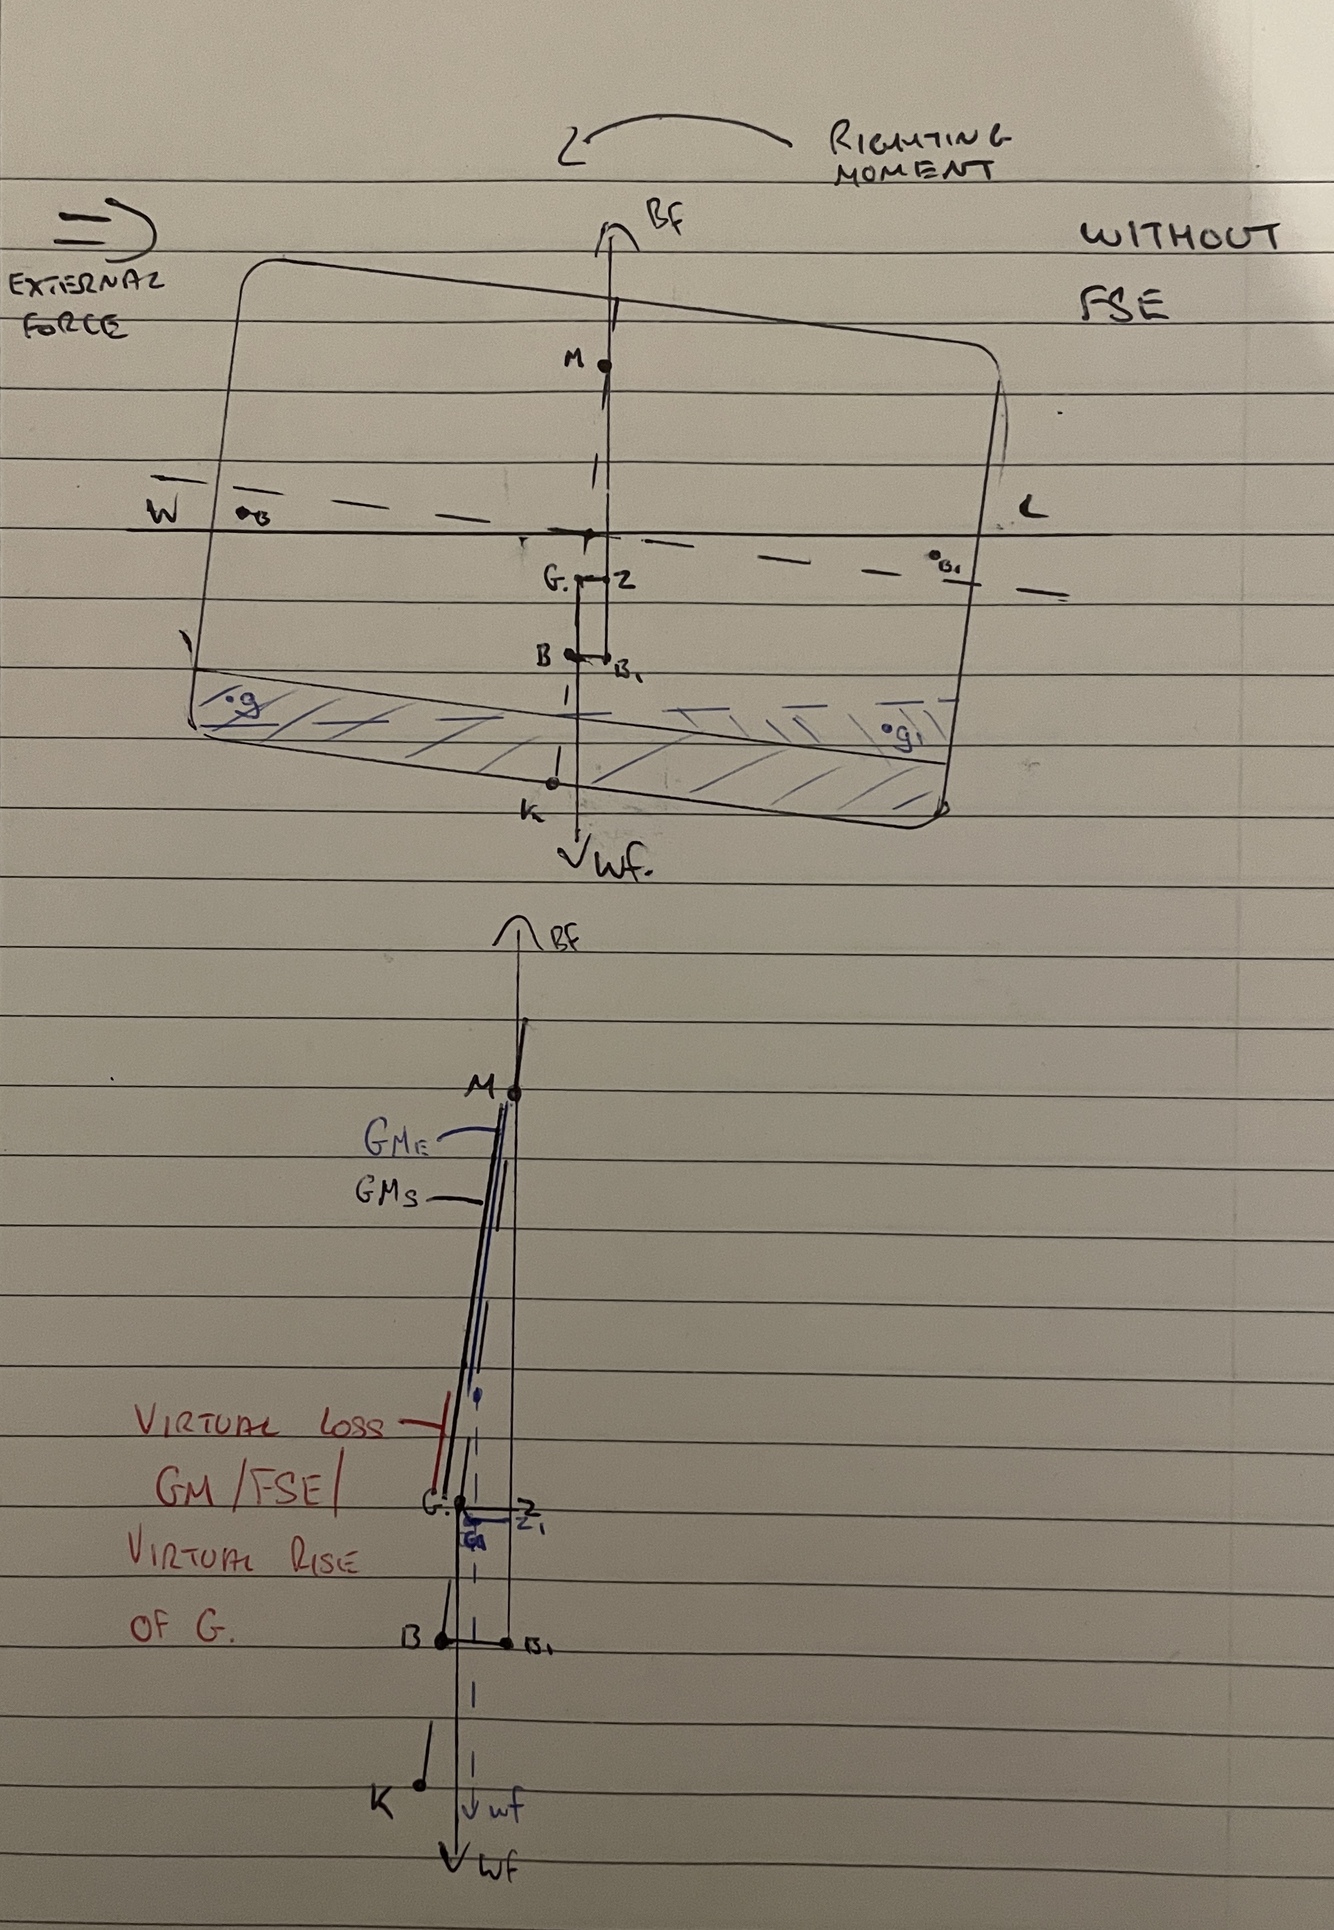 RIGHTING
MOMENT
BF
WITHOUT
FSE
EXTERNAL
FORCE
M
W
B
L
B₁
G. Z
B B₁
g
g₁
K
Wf.
BF
M
GME
GMS
VIRTUAL LOSS
GM /FSE/
G. Z
G₁ Z₁
VIRTUAL RISE
OF G.
B B₁
K
wf
Wf